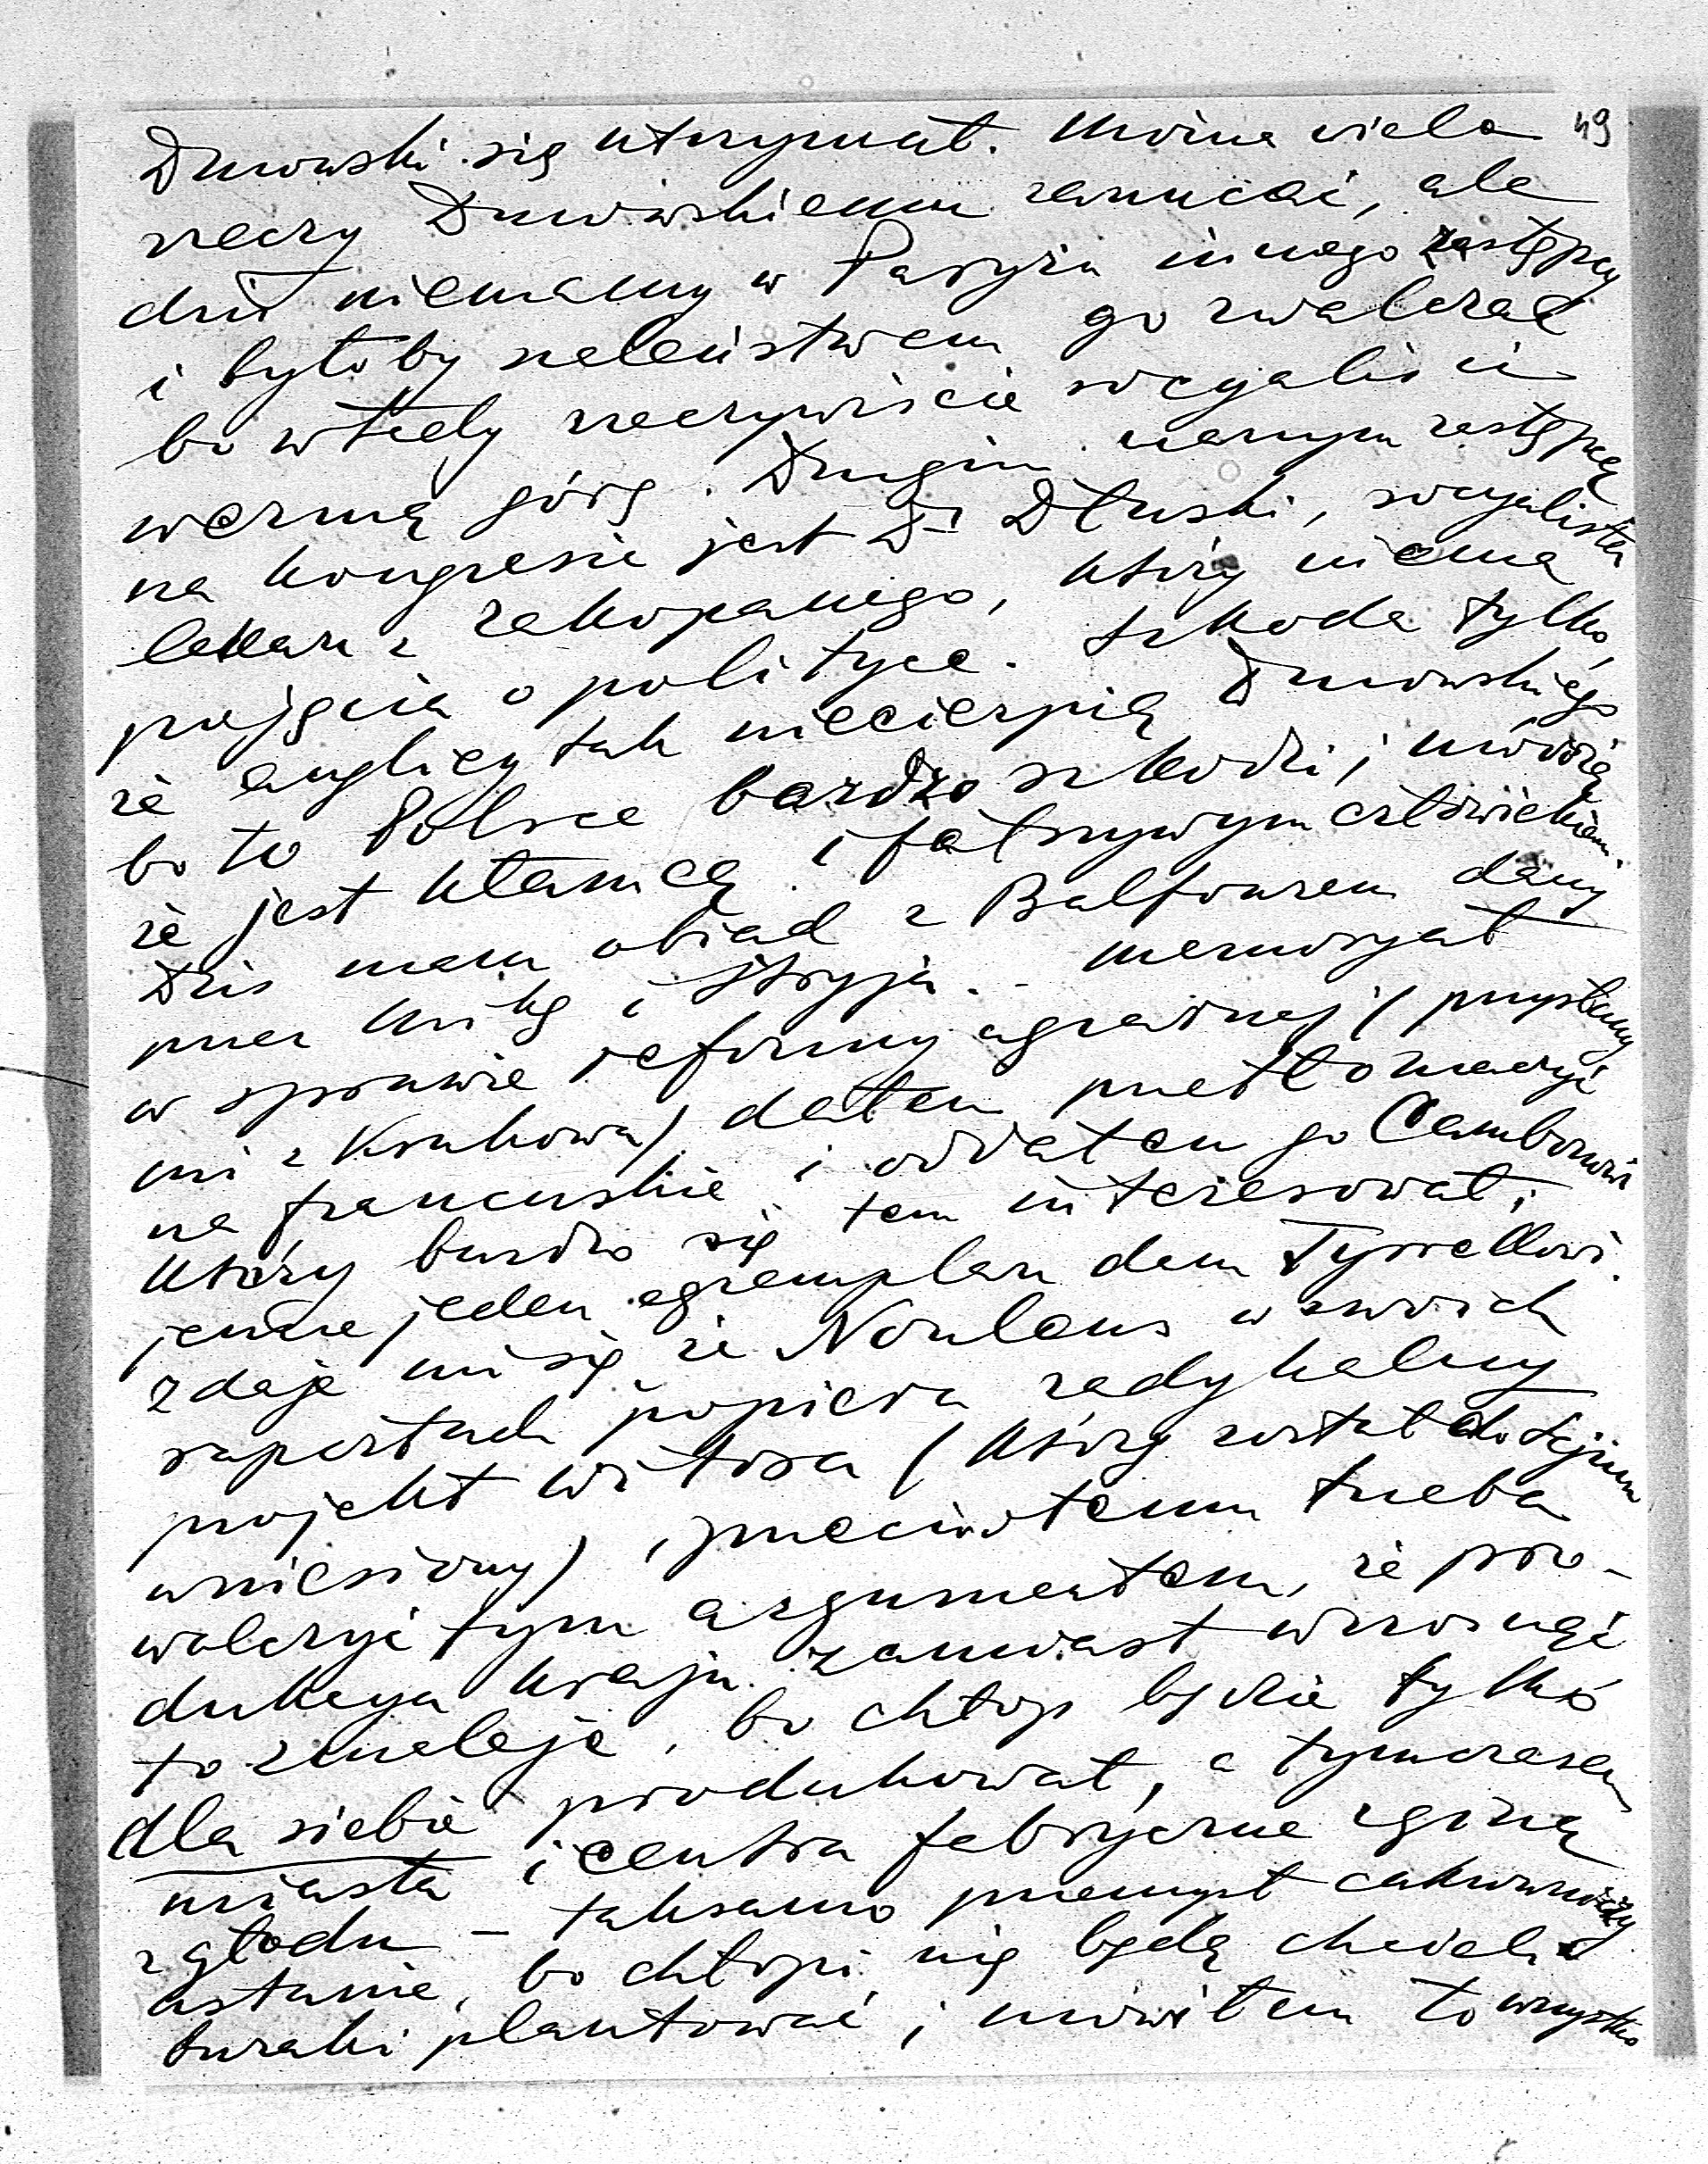 49
Dmowski się utrzymał. Można wiele
rzeczy Dmowskiemu zarzucać, ale
dziś niemamy w Paryżu innego zastępcy
i byłoby szaleństwem go zwalczać
bo wtedy rzeczywiście socyaliści
wezmą górę. Drugim naszym zastępcą
na kongresie jest Dr Dłuski, socyalista
lekarz z Zakopanego, który niema
pojęcia o polityce. Szkoda tylko,
że anglicy tak niecierpią Dmowskiego
bo to Polsce bardzo szkodzi; mówią
że jest kłamcą i fałszywym człowiekiem.
Dziś mam obiad z Balfourem dany
przez Kitkę i Stryja. - memoryał
w sprawie reformy agrarnej (przysłany
mi z Krakowa) dałem przetłomaczyć
na francuskie i oddałem go Cambonowi
który bardzo się tem interesował;
jeszcze jeden egzemplarz dam Tyrrellowi.
Zdaje mi się że Noulens w swoich
raportach popiera radykalny
projekt Witosa (który został do Sejmu
wniesiony), przeciwko temu trzeba
walczyć tym argumentem, że pro-
dukcya kraju zamiast wzrosnąć
to zmaleje, bo chłop będzie tylko
dla siebie produkował, a tymczasem
miasta i centra fabryczne zginą
z głodu – taksamo przemysł cukrowniczy
ustanie, bo chłopi nie będą chcieli
buraki plantować; mówiłem to wszystko